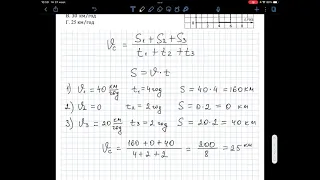 В. 30 км/год
Г. 25 км/год
ϑc = S1 + S2 + S3 / t1 + t2 + t3
S = ϑ · t
1) ϑ1 = 40 км/год t1 = 4 год S = 40 · 4 = 160 км
2) ϑ2 = 0 t2 = 2 год S = 0 · 2 = 0 км
3) ϑ3 = 20 км/год t3 = 2 год S = 20 · 2 = 40 км
ϑc = 160 + 0 + 40 / 4 + 2 + 2 = 200 / 8 = 25 км/год